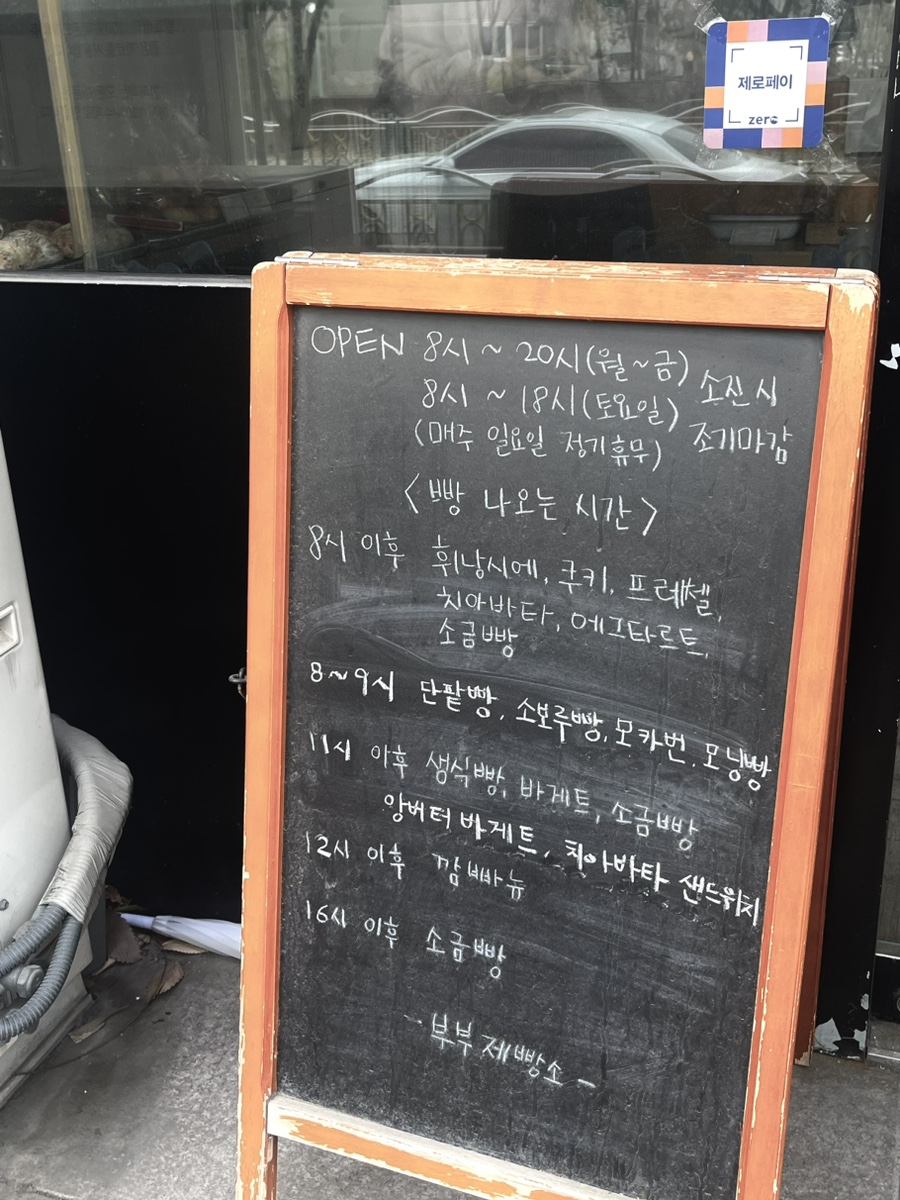 제로페이
zero
OPEN 8시 ~ 20시(월~금)
8시 ~ 18시(토요일)
소진 시
조기마감
(매주 일요일 정기휴무)
<빵 나오는 시간>
8시 이후 휘낭시에, 쿠키, 프레첼,
치아바타, 에그타르트,
소금빵
8~9시 단팥빵, 소보루빵, 모카번, 모닝빵
11시 이후 생식빵, 바게트, 소금빵
앙버터 바게트, 치아바타 샌드위치
12시 이후 깜빠뉴
16시 이후 소금빵
- 부부 제빵소 -